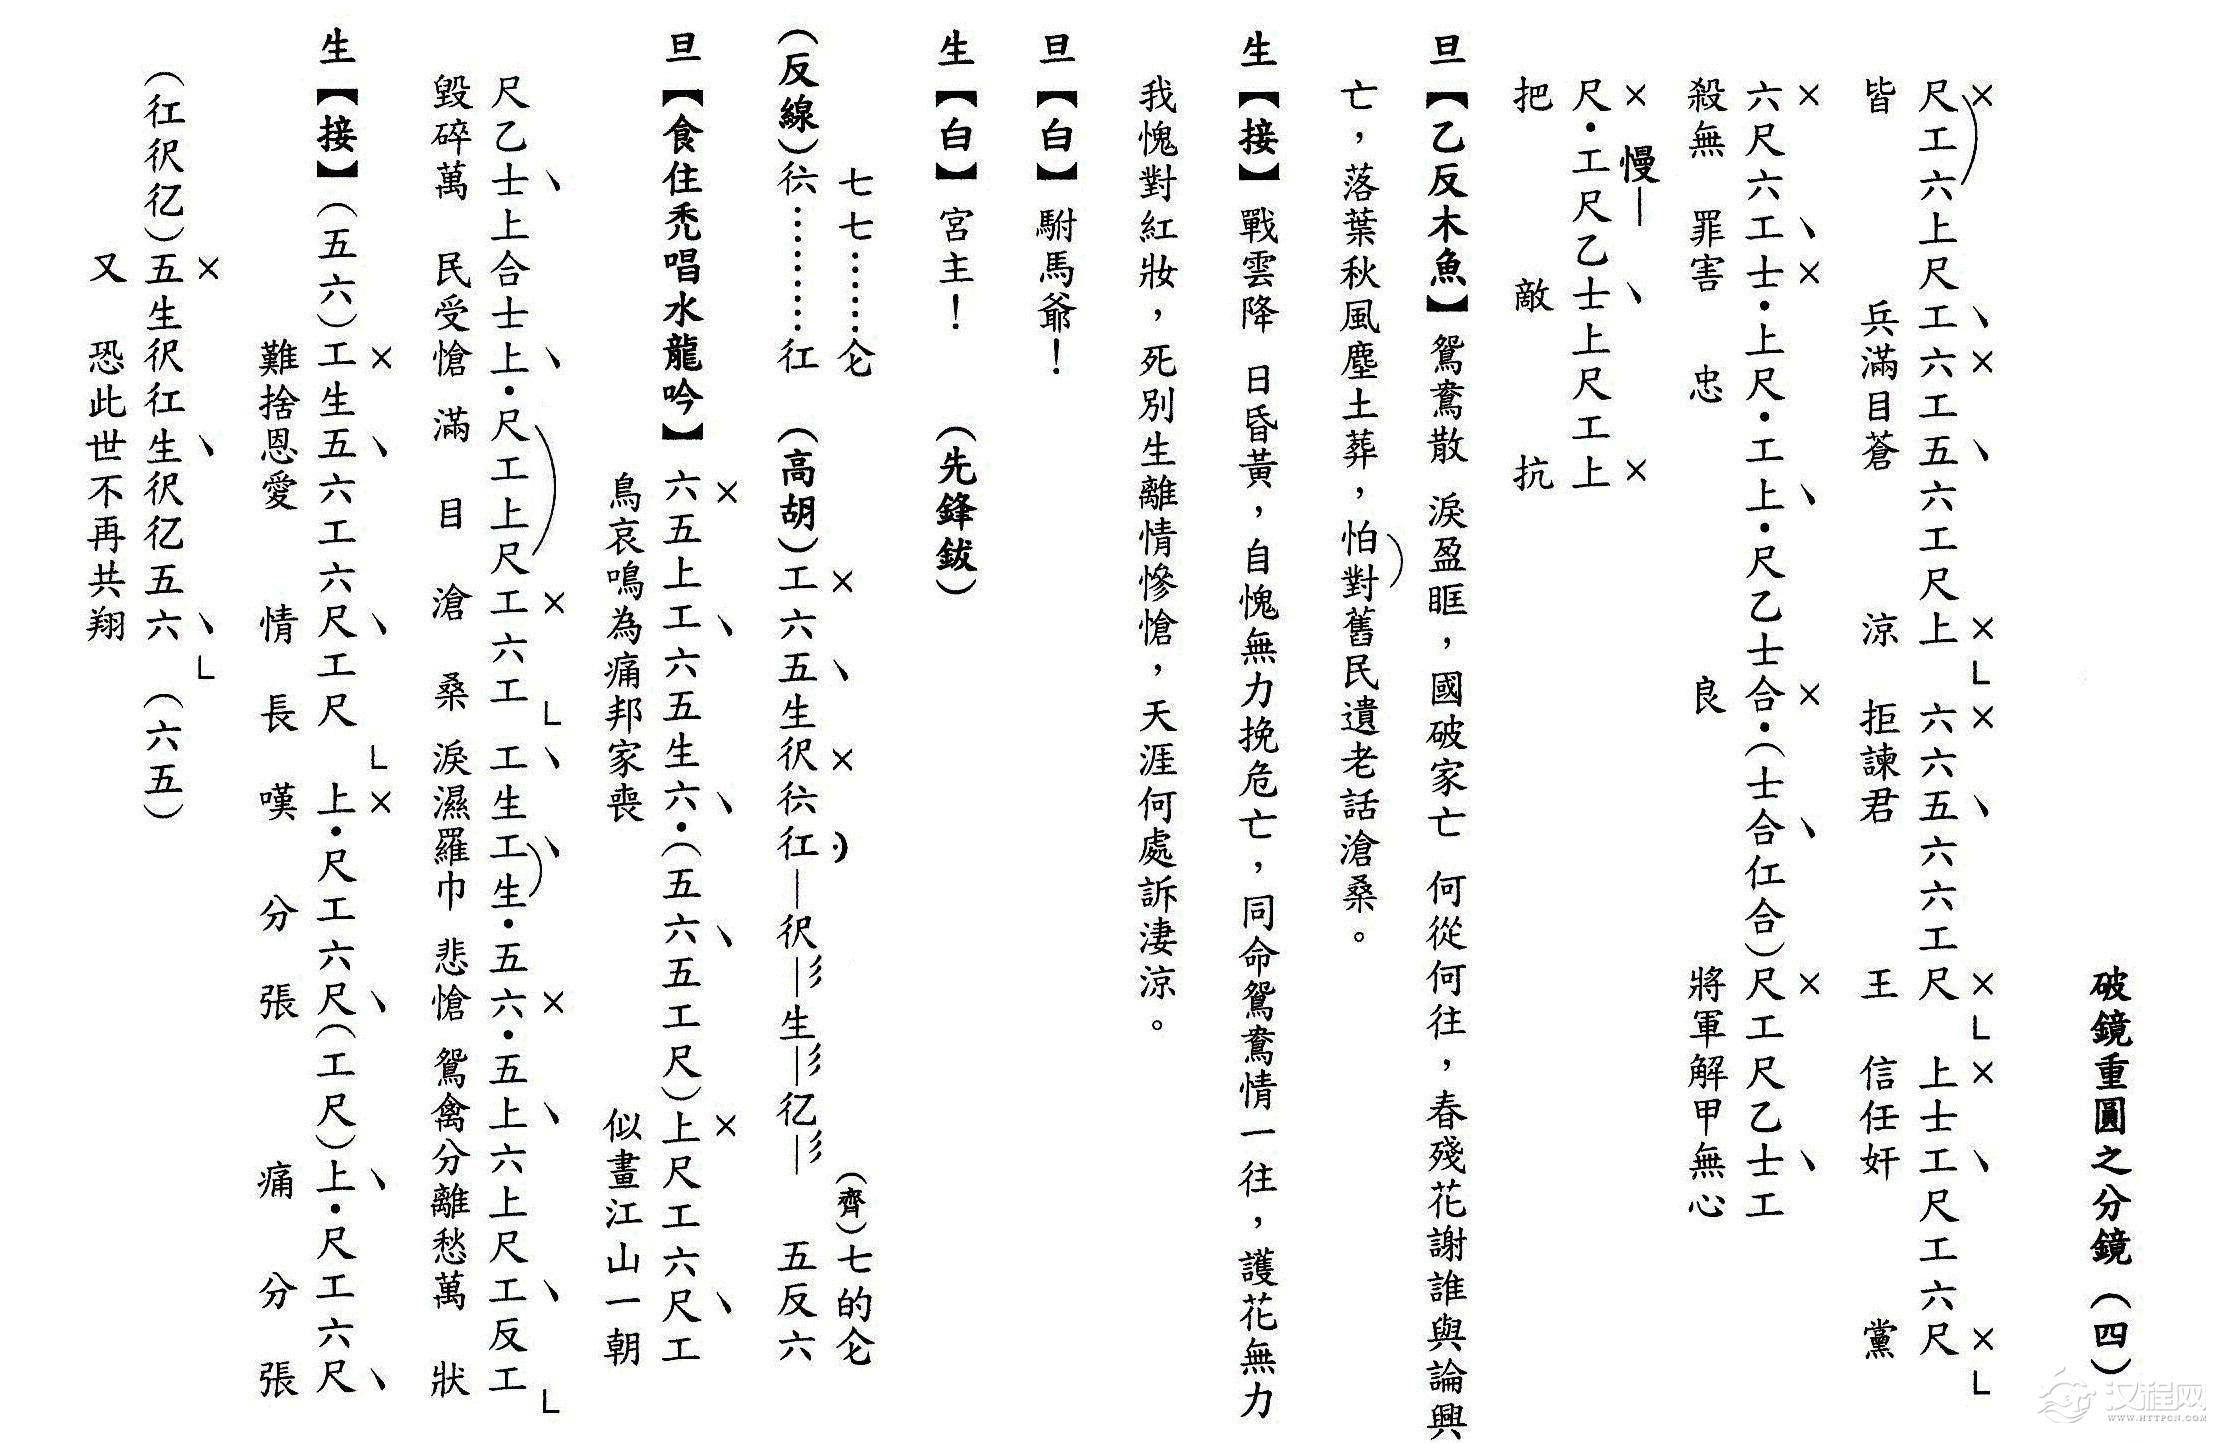 破鏡重圓之分鏡（四）
尺工六上尺工六工五六工尺上六六五六六工尺上士工尺工六尺
皆兵滿目蒼涼拒諫君王信任奸黨
六尺六工士·上尺·工上·尺乙士合·（士合仜合）尺工尺乙士工
殺無罪害忠良將軍解甲無心
慢—
尺·工尺乙士上尺工上
把敵抗
旦【乙反木魚】鴛鴦散 淚盈眶，國破家亡 何從何往，春殘花謝誰與論興
亡，落葉秋風塵土葬，怕對舊民遺老話滄桑。
生【接】戰雲降 日昏黃，自愧無力挽危亡，同命鴛鴦情一往，護花無力
我愧對紅妝，死別生離情慘愴，天涯何處訴淒涼。
旦【白】駙馬爺！
生【白】宮主！（先鋒鈸）
七七……仑（齊）七的仑
（反線）𠆾………仜（高胡）工六五生伬𠆾仜—伬—彡生—彡亿—彡五反六
旦【食住禿唱水龍吟】六五上工六五生六·（五六五工尺）上尺工六尺工
鳥哀鳴為痛邦家喪似畫江山一朝
尺乙士上合士上·尺工上尺工六工工生工生·五六·五上六上尺工反工
毀碎萬民受愴滿目滄桑淚濕羅巾悲愴鴛禽分離愁萬狀
生【接】（五六）工生五六工六尺工尺上·尺工六尺（工尺）上·尺工六尺
難捨恩愛情長嘆分張痛分張
（仜伬亿）五生伬仜生伬亿五六（六五）
又恐此世不再共翔
汉程网
WWW.HTTPCN.COM